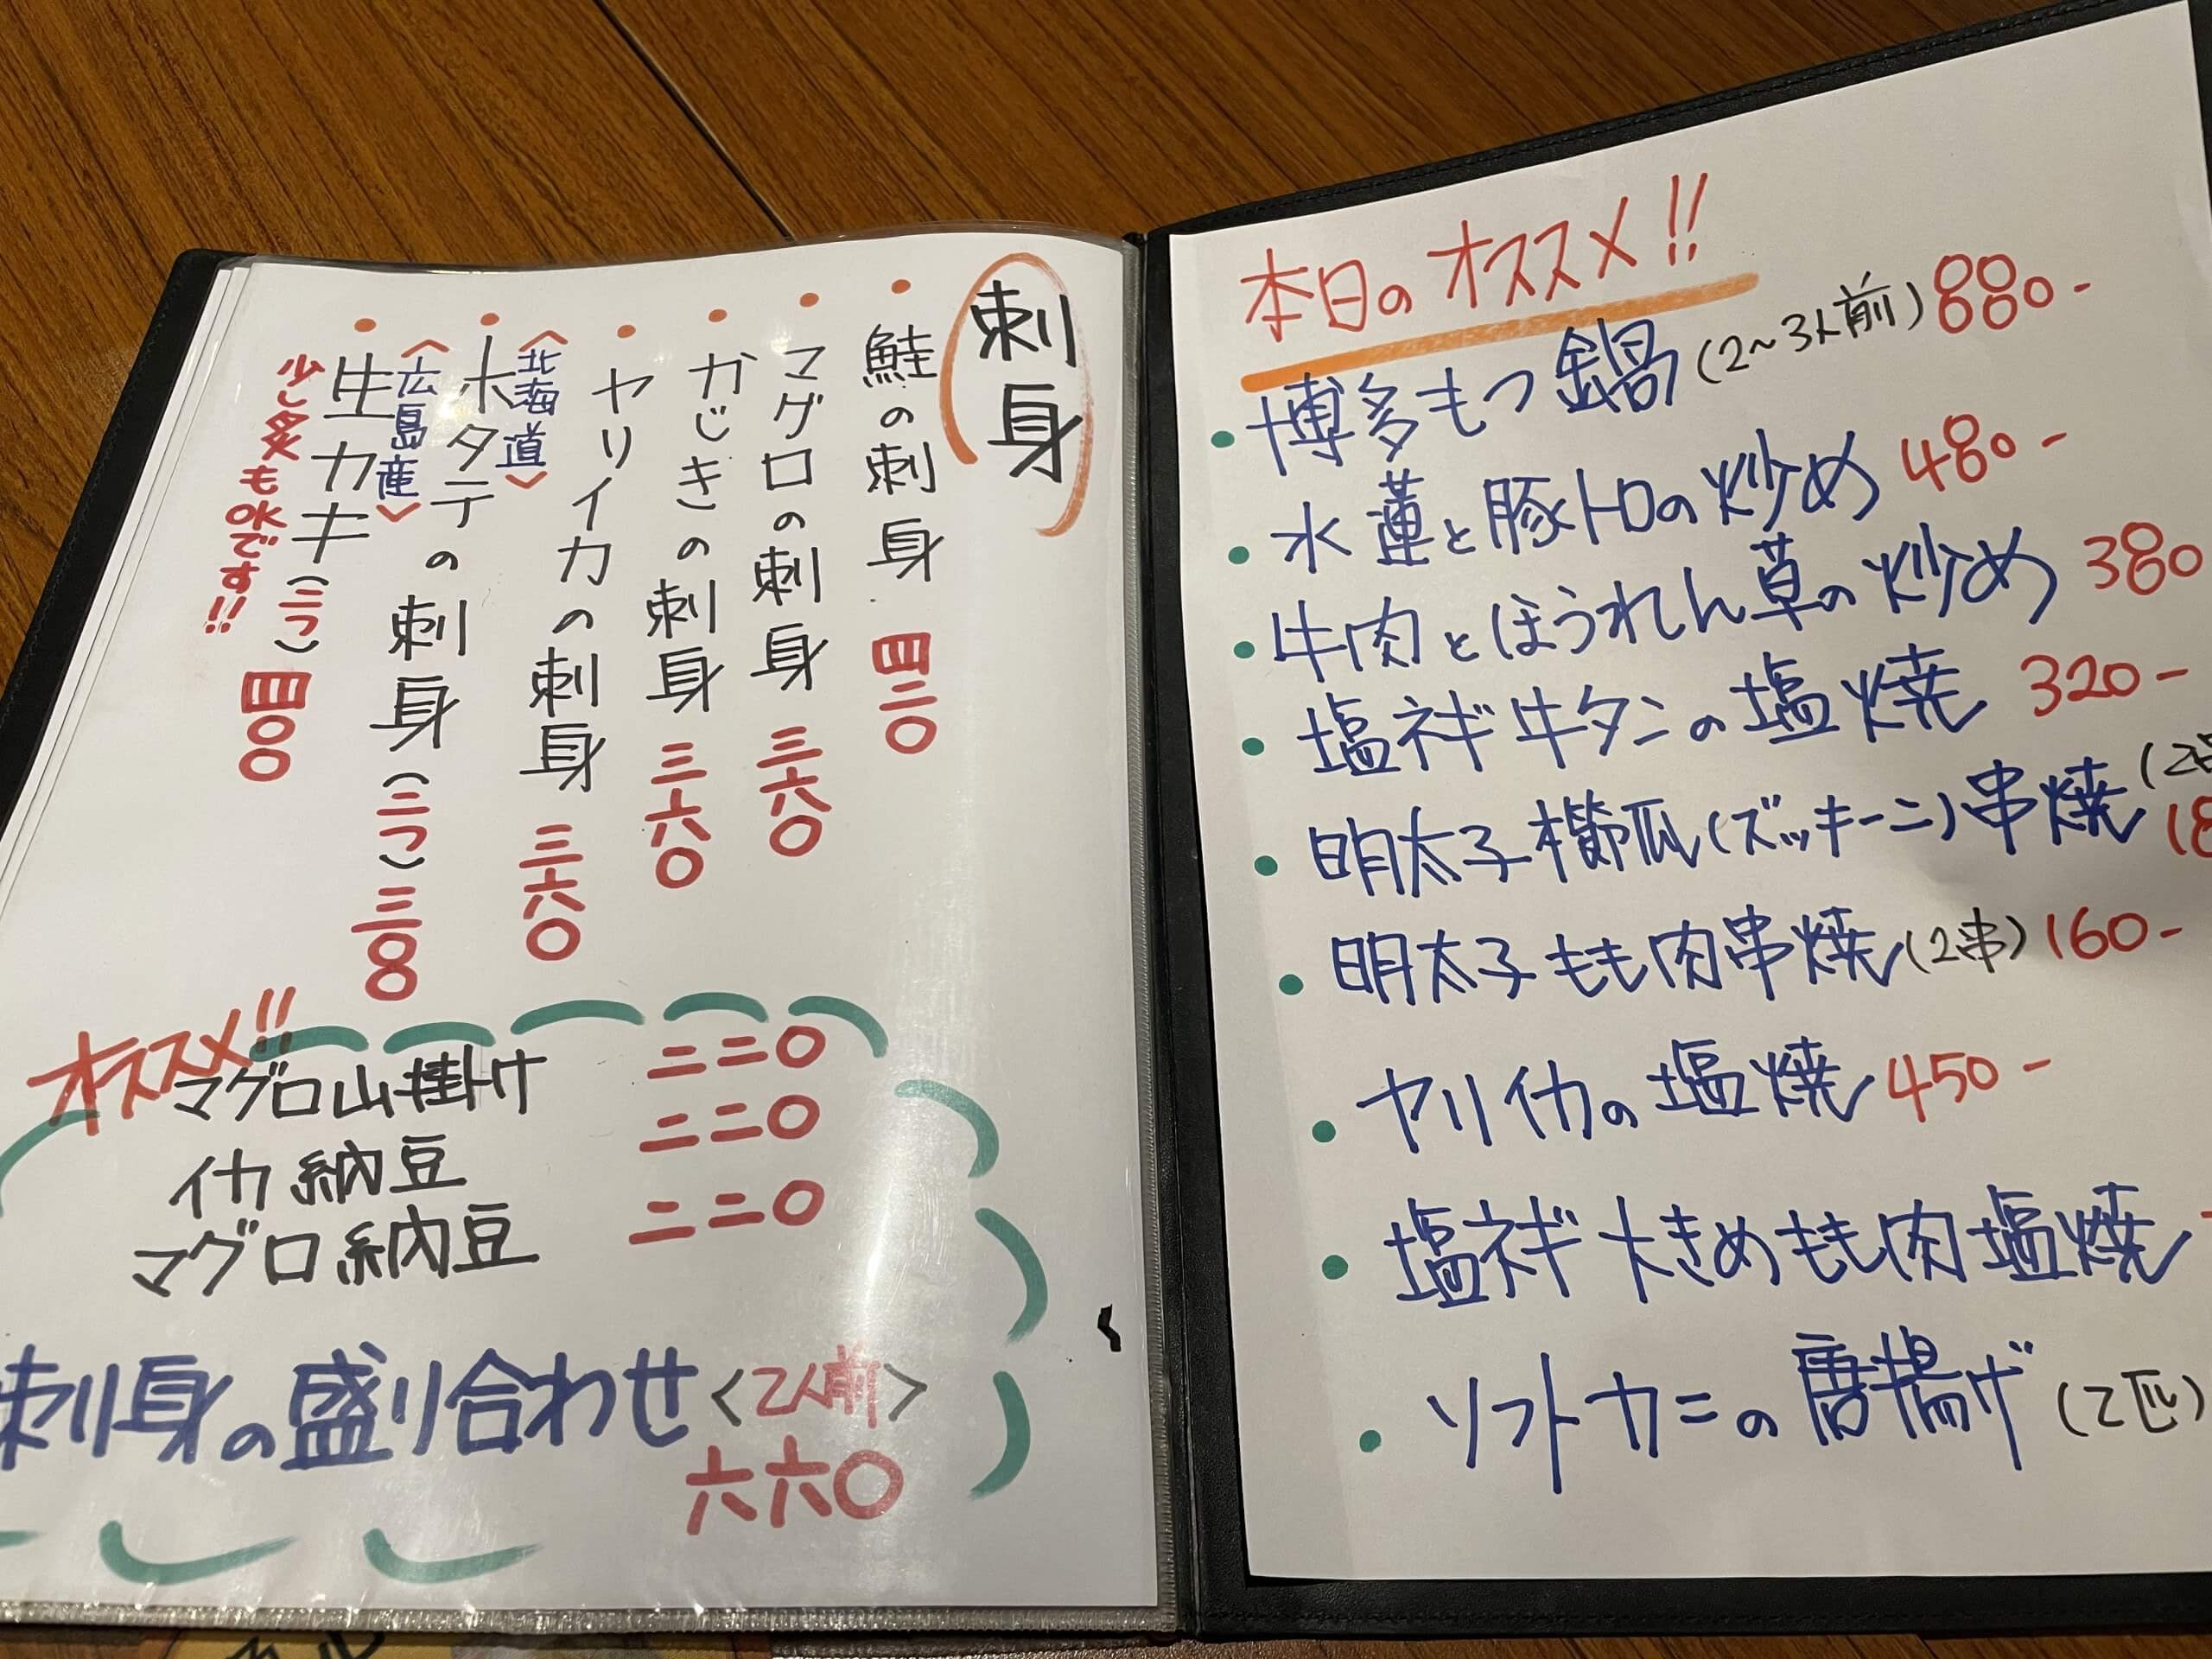 刺身
鮭の刺身 四二〇
マグロの刺身 三六〇
かじきの刺身 三六〇
ヤリイカの刺身 三六〇
〈北海道〉
ホタテの刺身(二つ) 三八〇
〈広島産〉
生カキ(三つ) 四〇〇
少し炙もOKです!!
オススメ!!
マグロ山掛け 二二〇
イカ納豆 二二〇
マグロ納豆 二二〇
刺身の盛り合わせ〈2人前〉
六六〇
本日のオススメ!!
博多もつ鍋(2~3人前)880-
水蓮と豚トロの炒め 480-
牛肉とほうれん草の炒め 380
塩ネギ牛タンの塩焼 320-
明太子櫛瓜(ズッキーニ)串焼(2串
18
明太子もも肉串焼(2串)160-
ヤリイカの塩焼 450-
塩ネギ大きめもも肉塩焼
ソフトカニの唐揚げ(2匹)